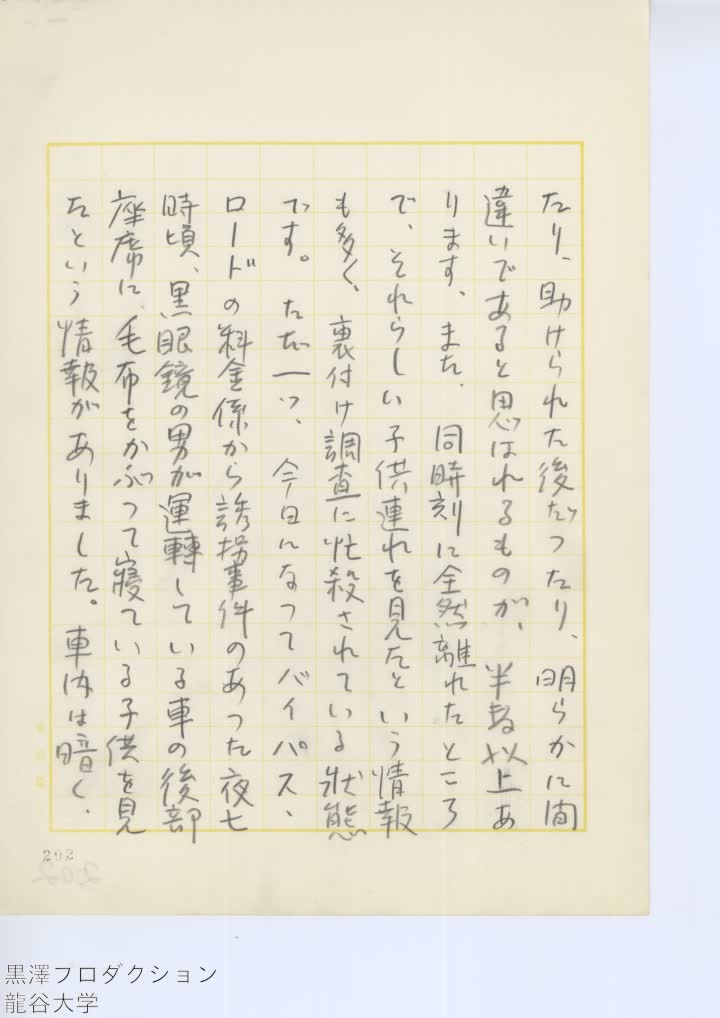 たり、助けられた後だつたり、明らかに間
違いであると思はれるものが、半数以上あ
ります、また、同時刻に全然離れたところ
で、それらしい子供連れを見たという情報
も多く、裏付け調査に忙殺されている狀態
です。ただ一つ、今日になつてバイパス、
ロードの料金係から誘拐事件のあつた夜七
時頃、黒眼鏡の男が運轉している車の後部
座席に、毛布をかぶつて寢ている子供を見
たという情報がありました。車内は暗く、
202
202
黒澤プロダクション
龍谷大学